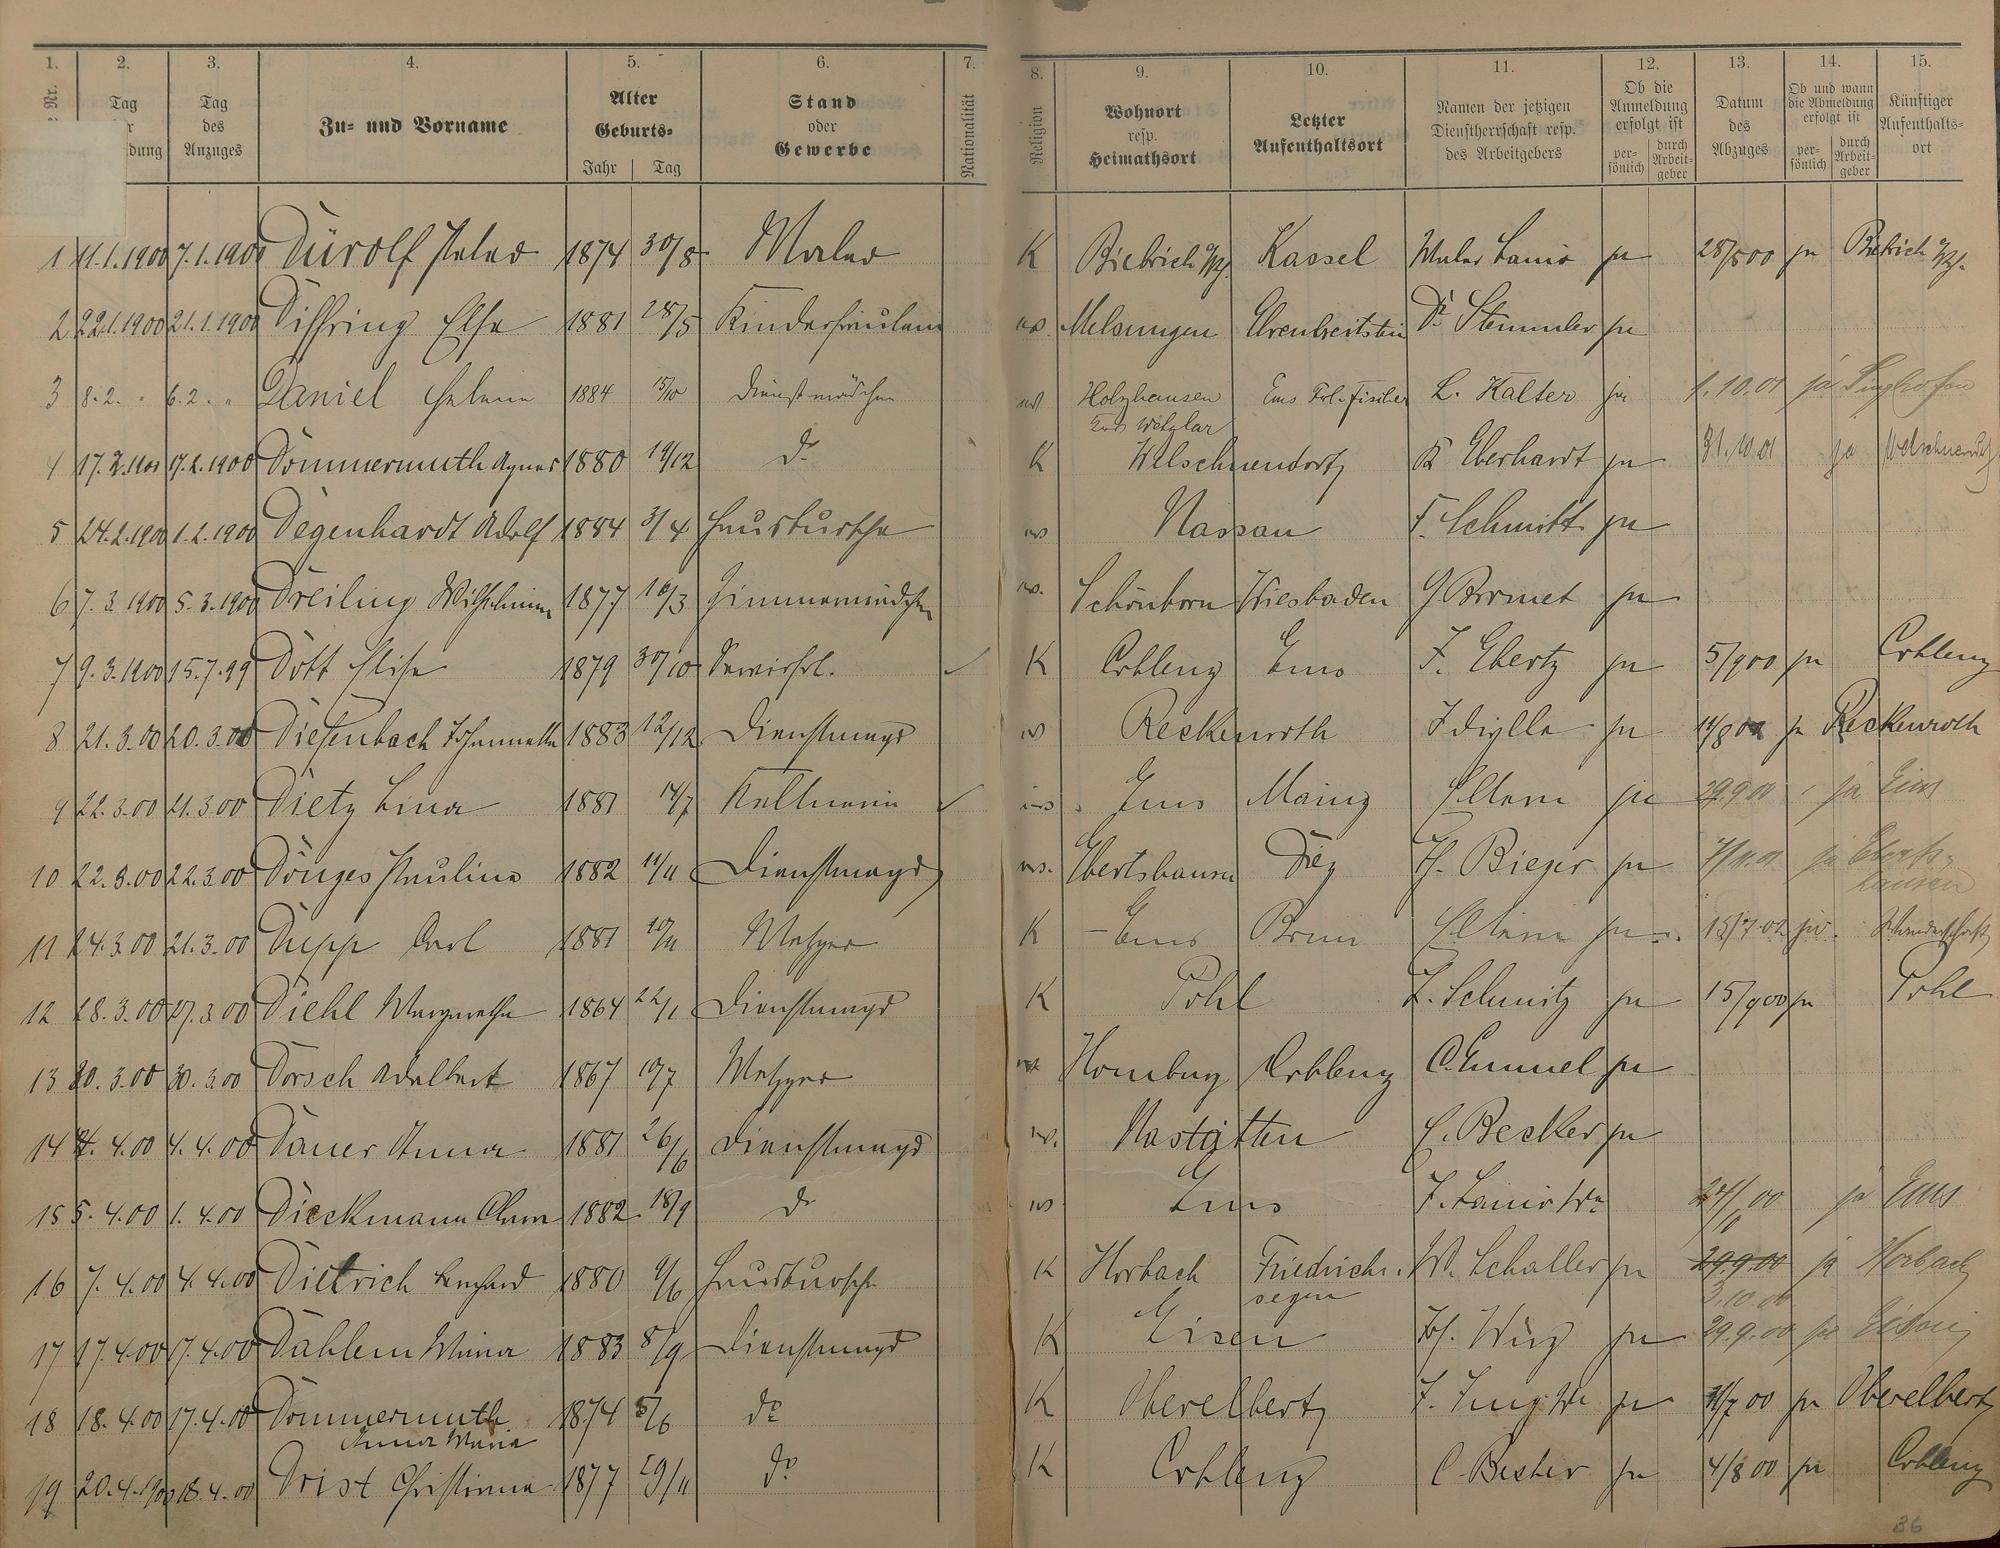 1. 2. 3. 4. 5. 6. 7. 8. 9. 10. 11. 12. 13. 14. 15.
Nr. Tag dung Tag des Anzuges Zu- und Vorname Alter Geburts- Jahr Tag Stand oder Gewerbe Nationalität Religion Wohnort resp. Heimathsort Letzter Aufenthaltsort Namen der jetzigen Dienstherrschaft resp. des Arbeitgebers Ob die Anmeldung erfolgt ist per- sönlich durch Arbeit- geber Datum des Abzuges Ob und wann die Abmeldung erfolgt ist per- sönlich durch Arbeit- geber Künftiger Aufenthalts- ort
1 11.1.1900 7.1.1900 Dürolf Peter 1874 30/8 Maler K Biebrich a/Rh. Kassel Maler Lanio ja 28/5 00 ja Biebrich a/Rh.
2 22.1.1900 21.1.1900 Diffring Else 1881 28/5 Kinderfräulein ev. Melsungen Ehrenbreitstein Dr. Stemmler ja
3 8.2. " 6.2. " Daniel Helene 1884 15/10 Dienstmädchen ev Holzhausen Ems Frl. Fischer L. Kalter ja 1.10.01 ja Singhofen
Krs Wetzlar
4 17.2.1900 17.2.1900 Dommermuth Agnes 1880 19/12 do K Welschneudorf B Eberhardt ja 31.10.01 ja Welschneudorf
5 24.2.1900 1.2.1900 Degenhardt Adolf 1884 3/4 Hausbursche ev Nassau F. Schmitt ja
6 7.3.1900 5.3.1900 Dreiling Wilhelmine 1877 16/3 Zimmermädchen ev. Schönborn Wiesbaden ja
7 9.3.1900 15.7.99 Dott Elise 1879 30/10 Servierfrl. K Coblenz Ems F. Ebertz ja 5/9 00 ja Coblenz
8 21.3.00 20.3.00 Diefenbach Johannette 1883 12/12 Dienstmagd ev Reckenroth ja 14/8 00 ja Reckenroth
9 22.3.00 21.3.00 Dietz Lina 1881 14/7 Kellnerin ev. Ems Mainz Eltern ja 29.9.00 ja Ems
10 22.3.00 22.3.00 Dönges Pauline 1882 11/11 Dienstmagd ev. Ebertshausen Diez H. Bieger ja 7/11.01 ja Eberts-
hausen
11 24.3.00 21.3.00 Depp Carl 1881 10/11 Metzger K Ems Bonn Eltern ja 15/7.02 ja. Wanderschaft
12 28.3.00 27.3.00 Diehl Margarethe 1864 22/1 Dienstmagd K Pohl J. Schmitz ja 15/9 00 ja Pohl
13 30.3.00 30.3.00 Dorsch Adalbert 1867 10/7 Metzger ev Homburg Coblenz C. Emmel ja
14 4.4.00 4.4.00 Dauer Anna 1881 26/6 Dienstmagd ev. Nastätten C. Becker ja
15 5.4.00 1.4.00 Dieckmann Clara 1882 18/9 do ev Ems F. Lanio Ww 00 ja Ems
16 7.4.00 4.4.00 Dietrich Leonhard 1880 9/6 Hausbursche K Horbach Friedrichs. W. Schaller ja 29.9.00 ja Horbach
segen 3.10.00
17 17.4.00 17.4.00 Dahlem Minna 1883 8/9 Dienstmagd K Eisen Jos. Wirz ja 29.9.00 ja
18 18.4.00 17.4.00 Dommermuth 1874 5/6 do K Oberelbert J. Jung Ww ja 00 ja Oberelbert
Anna Maria
19 20.4.1900 18.4.00 Drist Christina 1877 29/11 do K Coblenz C. Becker ja 4/8 00 ja Coblenz
36